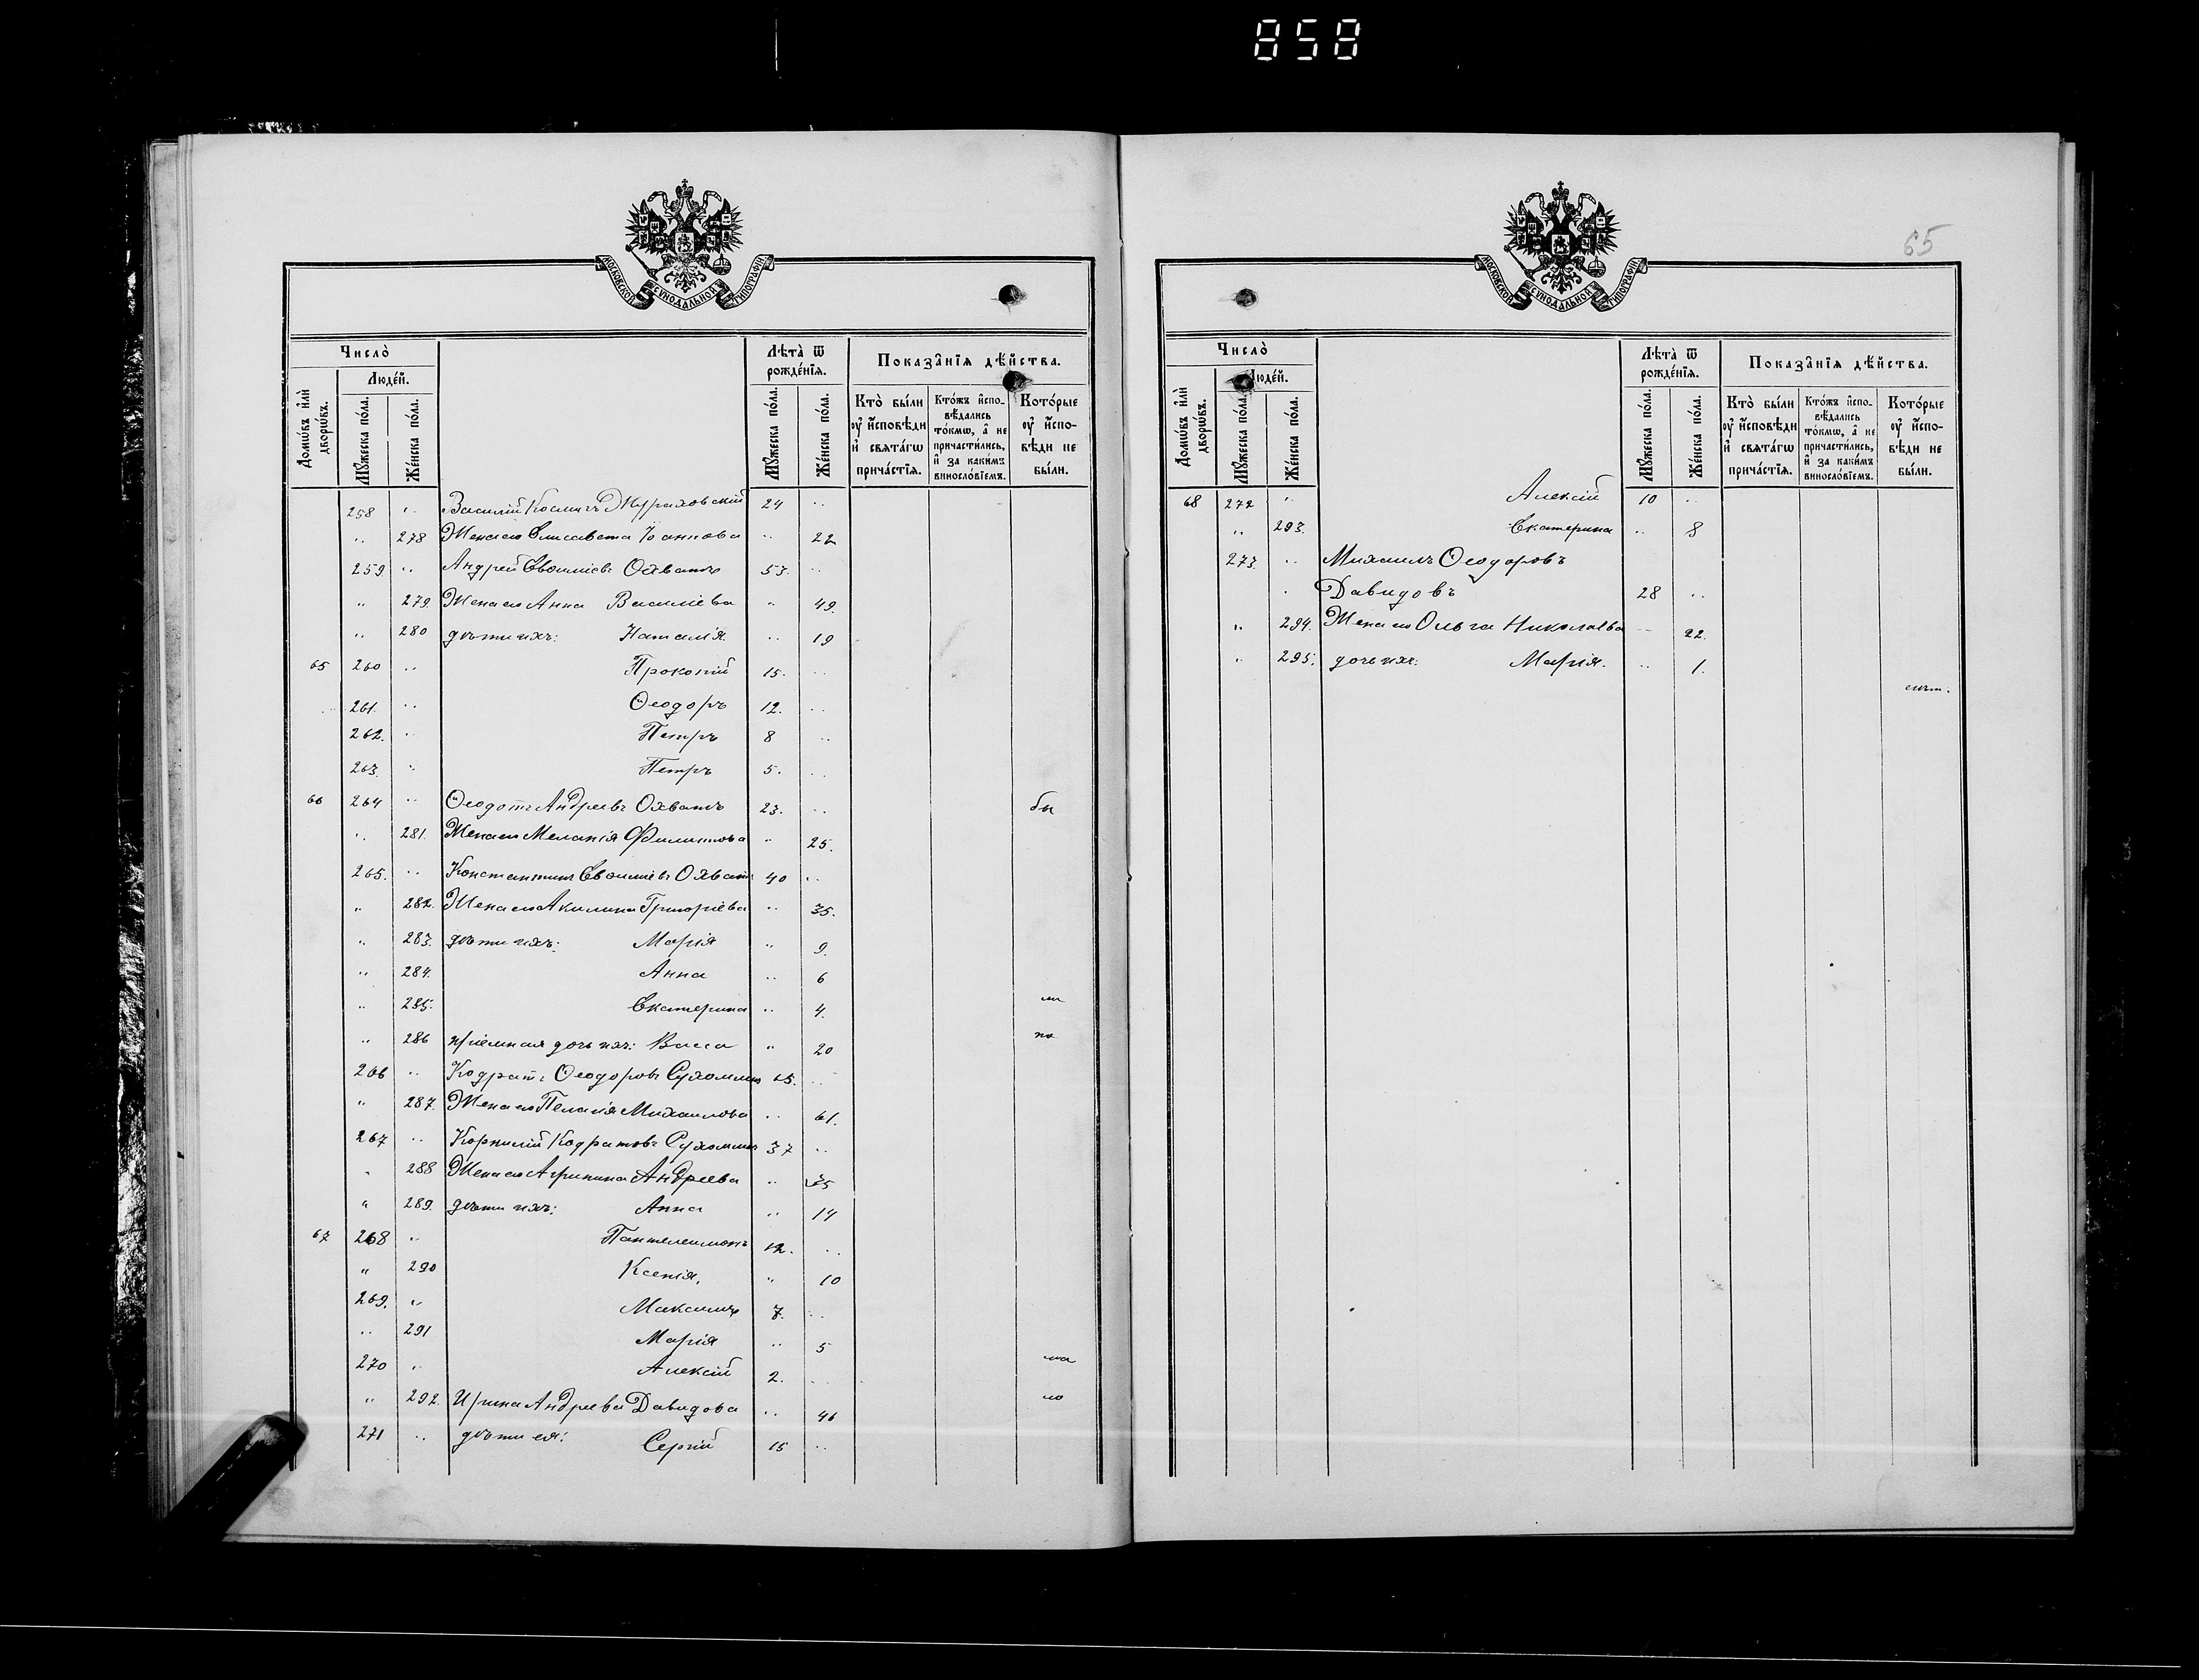 858
МОСКОВСКОЙ СѴНОДАЛЬНОЙ ТИПОГРАФІИ
Число̀
Людéй.
Домѡ́въ и҆лѝ дворѡ́въ.
Мꙋ́жеска по́ла.
Же́нска по́ла.
Лѣ́та ѿ рожде́нїѧ.
Мꙋ́жеска по́ла.
Же́нска по́ла.
Показа̑нїѧ дѣ́йства.
Кто̀ бы́ли оу҆ и҆сповѣди и҆ свѧта́гѡ прича́стїѧ.
Кто́жъ и҆спо-вѣдались то́кмѡ, а҆ не причасти́лись, и҆ за каки́мъ винослѡ́вїемъ.
Кото́рые оу҆ и҆спо-вѣди не бы́ли.
258 " Василій Космичъ Жураховскій 24 "
" 278 Жена его Елисавета Іоаннова " 22
259. " Андрей Евѳиміевъ Охватъ 53. "
" 279. Жена его Анна Василіева " 49.
" 280 дѣти ихъ: Наталія " 19
65 260 " Прокопій 15. "
261. " Ѳеодоръ 12. "
262. " Петръ 8 "
263. " Петръ 5. "
66 264 " Ѳеодотъ Андреевъ Охватъ 23. " бы
" 281. Жена его Меланія Филиппова " 25.
265. " Константинъ Евѳиміевъ Охватъ 40 "
" 282. Жена его Акилина Григоріева " 35.
" 283. дѣти ихъ: Марія " 9.
" 284. Анна " 6
" 285. Екатерина " 4. ли
" 286 пріемная дочь ихъ: Васса " 20
266 " Кодратъ Ѳеодоровъ Сухомлин 65. "
" 287. Жена его Пелагія Михаилова " 61.
267 " Корнилій Кодратовъ Сухомлин 37 "
" 288 Жена его Агрипина Андреева " 35
" 289. дѣти ихъ: Анна " 14
67 268 " Пантелеимонъ 12. "
" 290 Ксенія, " 10
269. " Максимъ 7. "
" 291 Марія " 5
270 " Алексій 2. "
" 292. Ирина Андреева Давидова " 46 ло
271 " дѣти ея: Сергій 15 "
65
МОСКОВСКОЙ СѴНОДАЛЬНОЙ ТИПОГРАФІИ
Число̀
Людéй.
Домѡ́въ и҆лѝ дворѡ́въ.
Мꙋ́жеска по́ла.
Же́нска по́ла.
Лѣ́та ѿ рожде́нїѧ.
Мꙋ́жеска по́ла.
Же́нска по́ла.
Показа̑нїѧ дѣ́йства.
Кто̀ бы́ли оу҆ и҆сповѣди и҆ свѧта́гѡ прича́стїѧ.
Кто́жъ и҆спо-вѣдались то́кмѡ, а҆ не причасти́лись, и҆ за каки́мъ винослѡ́вїемъ.
Кото́рые оу҆ и҆спо-вѣди не бы́ли.
68 272 " Алексій 10 "
" 293. Екатерина " 8
273. " Михаилъ Ѳеодоровъ
Давидовъ 28 "
" 294. Жена его Ольга Николаева " 22.
" 295. дочь ихъ: Марія. " 1.